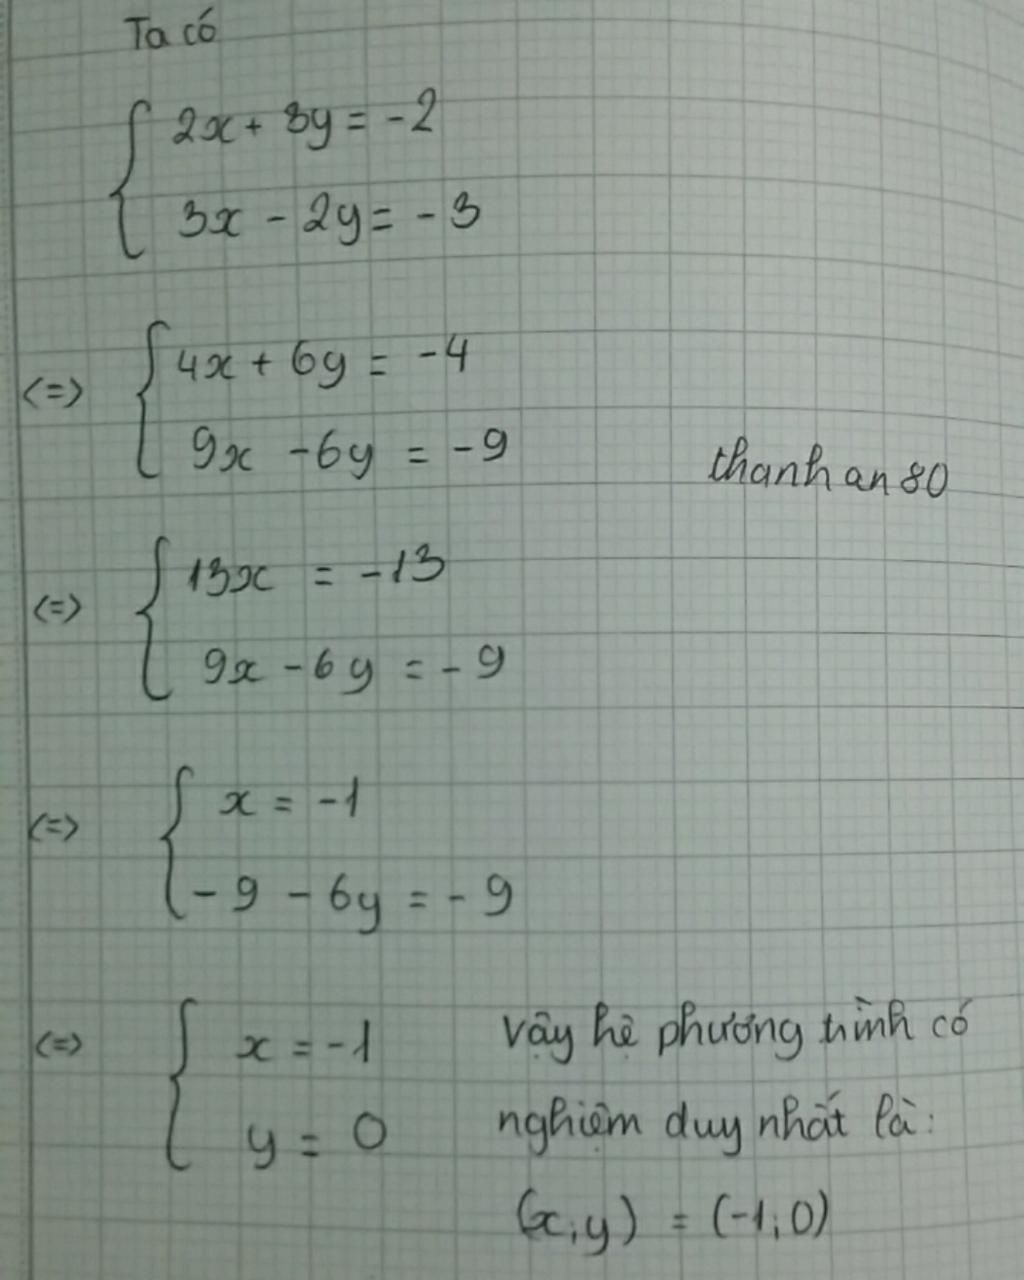 Ta có
2x + 3y = -2
3x - 2y = -3
<=> 4x + 6y = -4
9x - 6y = -9
thanhan80
<=> 13x = -13
9x - 6y = -9
<=> x = -1
-9 - 6y = -9
<=> x = -1
y = 0
Vậy hệ phương trình có
nghiệm duy nhất là:
(x;y) = (-1;0)